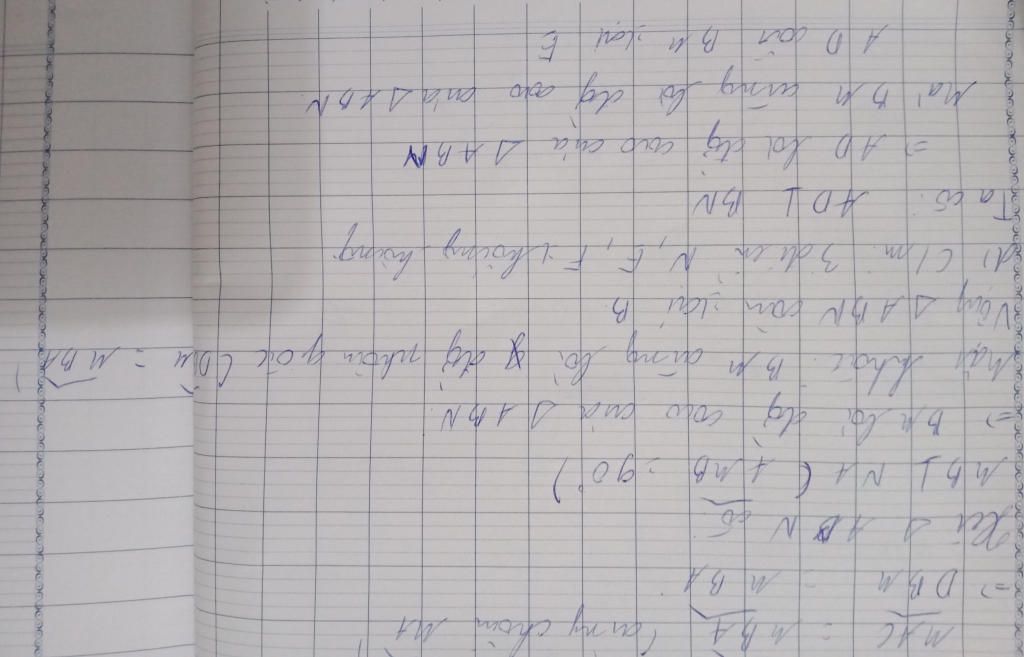 MAC = MBA (cùng chắn MA
=> DBM = MBA
Xét Δ ABN có:
MB ⊥ NA ( AMB = 90° )
=> BM là đg cao của Δ ABN
Mặt khác: BM cũng là đg phân giác (DBM = MBA)
Vậy Δ ABN cân tại B
d) C/m: 3 điểm N, E, F thẳng hàng
Ta có: AD ⊥ BN
=> AD là đg cao của Δ ABN
Mà BM cũng là đg cao của Δ ABN
AD cắt BM tại E